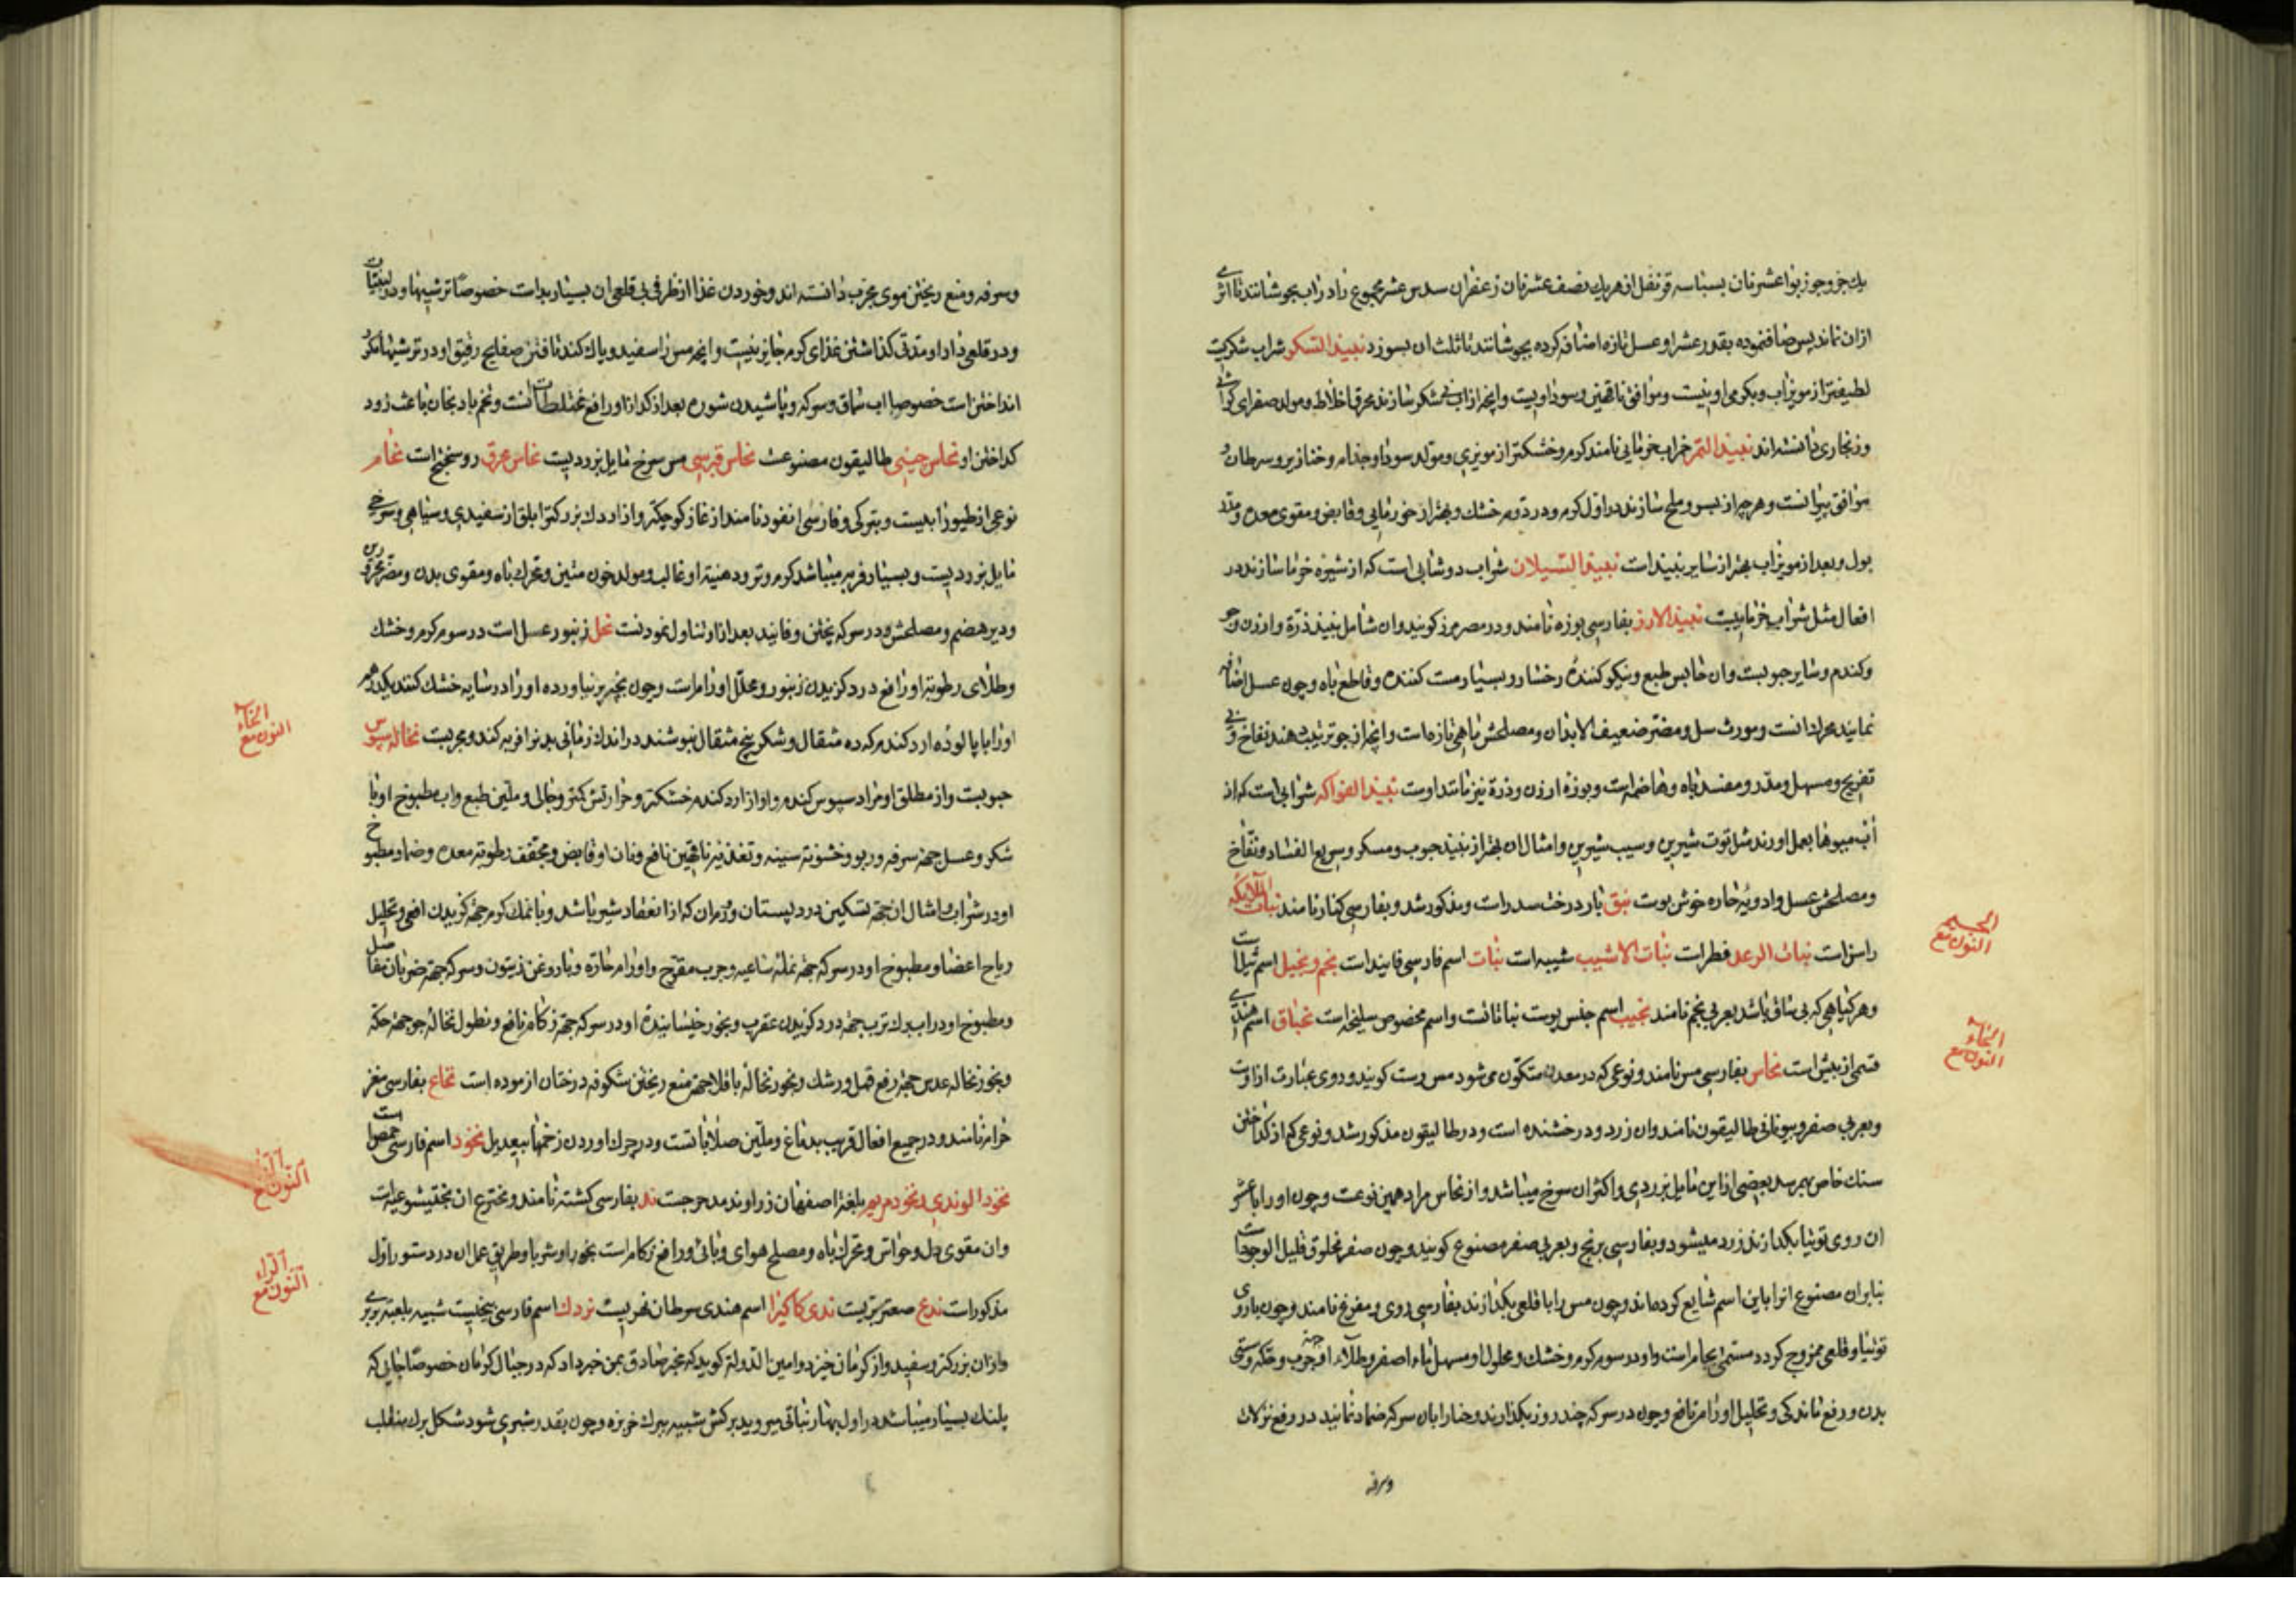 یك جزو جوزبوا عشر نان بسباسه قرنفل از هریك نصف عشر نان زعفران سدس عشر مجموع را در آب بجوشانند تا اثری
ازان نماند پس صاف نموده بقدر عشر او عسل تازه اضافه کرده بجوشانند تا ثلث ان بسوزد نبیذ السکر شراب شکریست
لطیفتر از مویزاب و بگرمی او نیست و موافق ناقهین و سوداویست و انچه از اب نی شکر سازند محرق اخلاط و مولد صفرای کراثی
و زنجاری دانسته اند نبیذ التمر خراب خرمایی نامند گرم و خشکتر از مویزی و مولد سودا و جذام و خنازیر و سرطان و
موافق پیرانست و هرچه از بسر و بلح سازند در اول گرم و در دوم خشك و بهتر از خرمایی و قابض و مقوی معده و مدر
بول و بعد از مویزاب بهتر از سایر نبیذ است نبیذ السیلان شراب دوشابی است که از شیره خرما سازند در
افعال مثل شراب خرماییست نبیذ الارز بفارسی بوزه نامند و در مصر مزر کویند وان شامل نبیذ ذرة و ارزن و جو
و کندم و سایر حبوبست وان حابس طبع و نیکو کننده رخسار و بسیار مست کننده و قاطع باه و چون عسل اضافه
نمایند محرك انست و مورث سل و مضر ضعیف الابدان و مصلحش ماهی تازه است و انچه از جو ترتیب دهند نفاخ و بی
تفریح و مسهل و مدر و مفسد باه و هاضم است و بوزه ارزن و ذرة نیز مانند اوست نبیذ الفواکه شرابی است که از
آب میوها بعمل اورند مثل توت شیرین و سیب شیرین و امثال ان بهتر از نبیذ حبوب و مسکر و سریع الفساد و نفاخ
و مصلحش عسل و ادویه حاره خوش بوست نبق بار درخت سدر است و مذکور شد و بفارسی کنار نامند نبات الملایکه
راسن است نبات الرعد فطر است نبات الاشیب شیبه است نبات اسم فارسی فانید است نجم و نجیل اسم ثیل است
و هر کیاهی که بی ساق باشد بعربی نجم نامند نجیب اسم جنس پوست نباتاتست و اسم مخصوص سلیخه است اسم هندی
قسمی از بیش است نحاس بفارسی مس نامند و نوعی که در معدن متکون می شود مس رست کویند و روی عبارت ازوست
و بعربی صفر و بیونانی طالیقون نامند وان زرد و درخشنده است و در طالیقون مذکور شد و نوعی که از کداختن
سنك خاص بهم رسد بعضی ازاین مایل بزردی و اکثر ان سرخ میباشد و از نحاس مراد همین نوعست و چون او را با عشر
ان روی توتیا بکدازند زرد میشود و بفارسی برنج و بعربی صفر مصنوع کویند و چون صفر مخلوق قلیل الوجود است
بنابران مصنوع انرا باین اسم شایع کرده اند و چون مس را با قلعی بکدازند بفارسی روی و مفرغ نامند و چون با روی
توتیا و قلعی ممزوج کردد مسمی بجام است و او در سوم گرم و خشك و محلول او مسهل ماء اصفر و طلاء او جهة جرب و حکه و سستی
بدن و رفع ماندکی و تحلیل اورام نافع و چون در سرکه چند روز بکذارند و حنا را بان سرکه ضماد نمایند در رفع نزلات
وسرفه
الجیم
النون مع
الحاء
النون مع
و سرفه و منع ریختن موی مجرب دانسته اند و خوردن غذا از ظرف بی قلعی ان بسیار بد است خصوصاً ترشیها و در لبنیات
و در قلعی دار او مدتی کذاشتن غذای گرم جایز نیست و انچه مس را سفید و پاك کند تافتن صفایح رقیق او و در ترشیها مکرر
انداختن است خصوصا اب سماق و سرکه و پاشیدن شوره بعد از کداز او رافع مختلطات انست و تخم بادنجان باعث زود
کداختن او نحاس چینی طالیقون مصنوعست نحاس قبرسی مس سرخ مایل بزردیست نحاس محرق روسختج است نحام
نوعی از طیور ابیست و بترکی و فارسی انقود نامند از غاز کوچکتر و از اردك بزرکتر ابلق از سفیدی و سیاهی و سرخی
مایل بزردیست و بسیار فربه میباشد گرم و تر و دهنیة او غالب و مولد خون متین و محرك باه و مقوی بدن و مضر محرورین
و دیر هضم و مصلحش در سرکه پختن و فانید بعد ازان تناول نمودنست نحل زنبور عسل است در سوم گرم و خشك
و طلای رطوبة او رافع درد کزیدن زنبور و محلل اورام است و چون بچه پر نیاورده او را در سایه خشك کنند یکدرهم
او را با پالوده ارد کندم که ده مثقال و شکر پنج مثقال بنوشند در اندك زمانی بدن را فربه کند و مجربست نخاله سبوس
حبوبست و از مطلق او مراد سبوس کندم و او از ارد کندم خشکتر و حرارتش کمتر و جالی و ملین طبع و اب مطبوخ او با
شکر و عسل جهة سرفه و ربو و خشونة سینه و تغذیه ناقهین نافع و نان او قابض و مجفف رطوبة معده و ضماد مطبوخ
او در شراب و امثال ان جهة تسکین درد پستان و ورم ان که از انعقاد شیر باشد و با نمك گرم جهة کزیدن افعی و تحلیل
ریاح اعضا و مطبوخ او در سرکه جهة نملة ساعیه و جرب متقرح و اورام حاره و با روغن زیتون و سرکه جهة ضربان مفاصل
و مطبوخ او در اب برك ترب جهة درد کزیدن عقرب و بخور خیسانیده او در سرکه جهة زکام نافع و نطول نخاله جو جهة حکه
و بخور نخاله عدس جهة رفع قمل و رشك و بخور نخاله باقلا جهة منع ریختن شکوفه درختان ازموده است نخاع بفارسی مغز
حرام نامند و در جمیع افعال قریب بدماغ و ملین صلاباتست و در چرك اوردن زخمها بیعدیل نخود اسم فارسی حمص است
نخود الوندی و نخود مریم بلغة اصفهان زراوند مدحرجست ند بفارسی کشته نامند و مخترع ان بختیشوعست
وان مقوی دل و حواس و محرك باه و مصلح هوای وبائی و رافع زکام است بخورا و شربا و طریق عمل ان در دستور اول
مذکور است ندغ صعتر بریست ندی کاکیرا اسم هندی سرطان نهریست نردك اسم فارسی بیخیست شبیه بلعبة بربری
وازان بزرکتر و سفید و از کرمان خیزد و امین الدوله کوید که مخبر صادق بمن خبر داد که در جبال کرمان خصوصاً جایی که
پلنك بسیار میباشد در اول بهار نباتی میروید برکش شبیه ببرك خربزه و چون بقدر شبری شود شکل برك منقلب
الخاء
النون مع
النون مع
الراء
النون مع